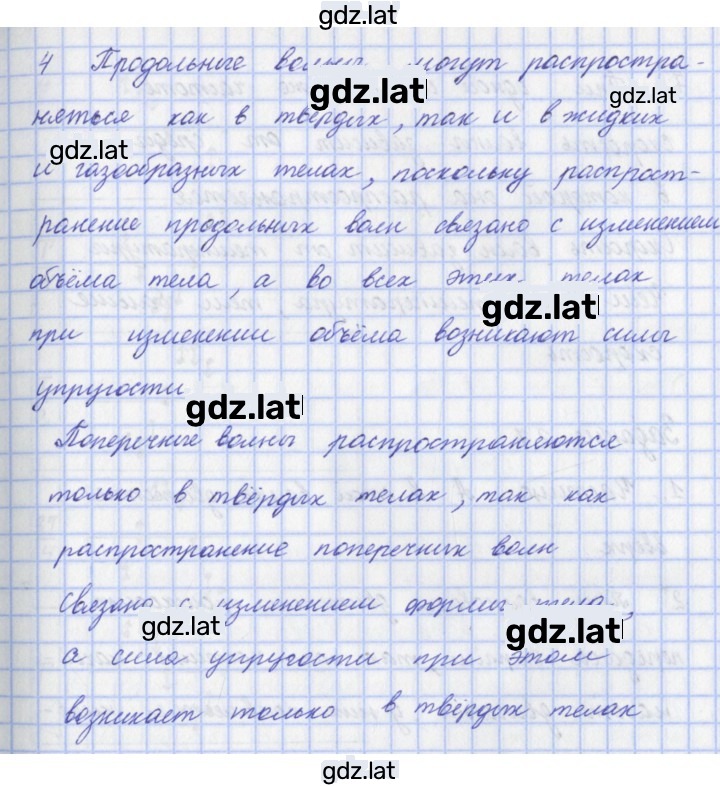 gdz.lat
4 Продольные волны могут распростра-
gdz.lat gdz.lat
няться как в твёрдых, так и в жидких
gdz.lat
и газообразных телах, поскольку распрост-
ранение продольных волн связано с изменением
объёма тела, а во всех этих телах
gdz.lat
при изменении объёма возникают силы
упругости
gdz.lat
Поперечные волны распространяются
только в твёрдых телах, так как
распространение поперечных волн
связано с изменением формы тела,
gdz.lat gdz.lat
а сила упругости при этом
возникает только в твёрдых телах
gdz.lat